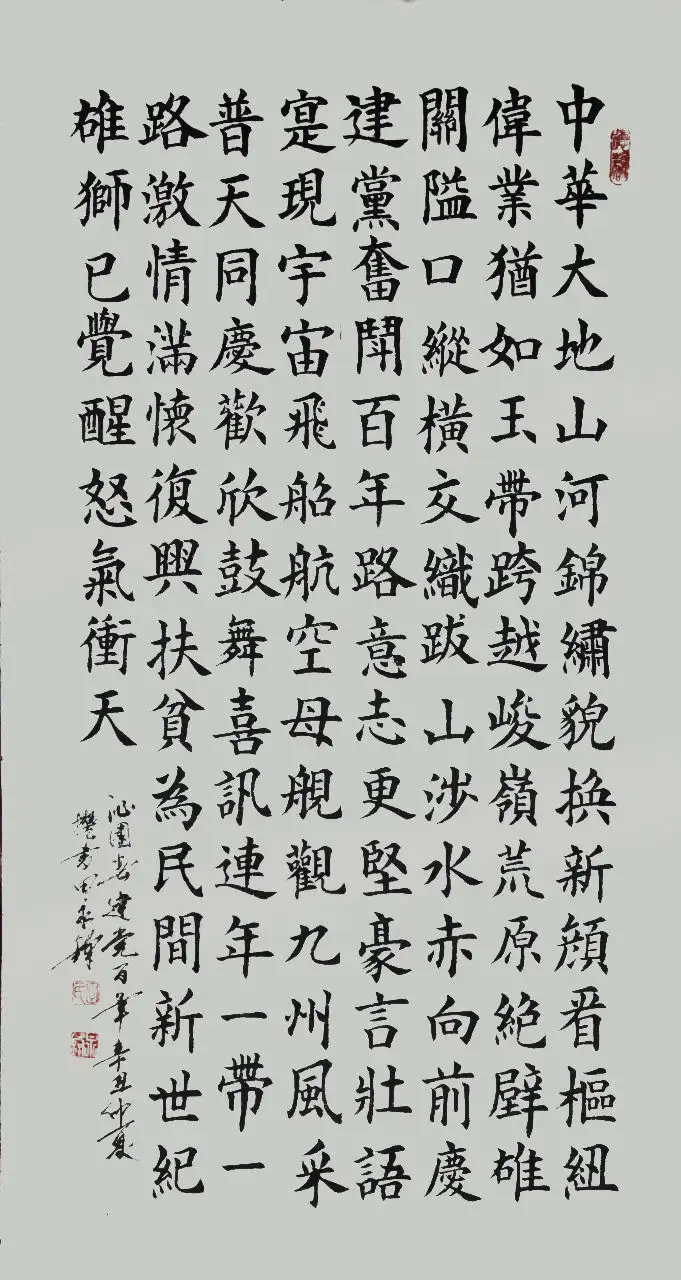 中華大地山河錦繡貌換新顔看樞紐
偉業猶如玉帶跨越峻嶺荒原絕壁雄
關隘口縱橫交織跋山涉水赤向前慶
建黨奮鬥百年路意志更堅豪言壯語
寔現宇宙飛船航空母舰觀九州風采
普天同慶歡欣鼓舞喜訊連年一帶一
路激情滿懷復興扶貧為民間新世紀
雄獅已覺醒怒氣衝天
沁園春建党百年辛丑仲夏
書田永